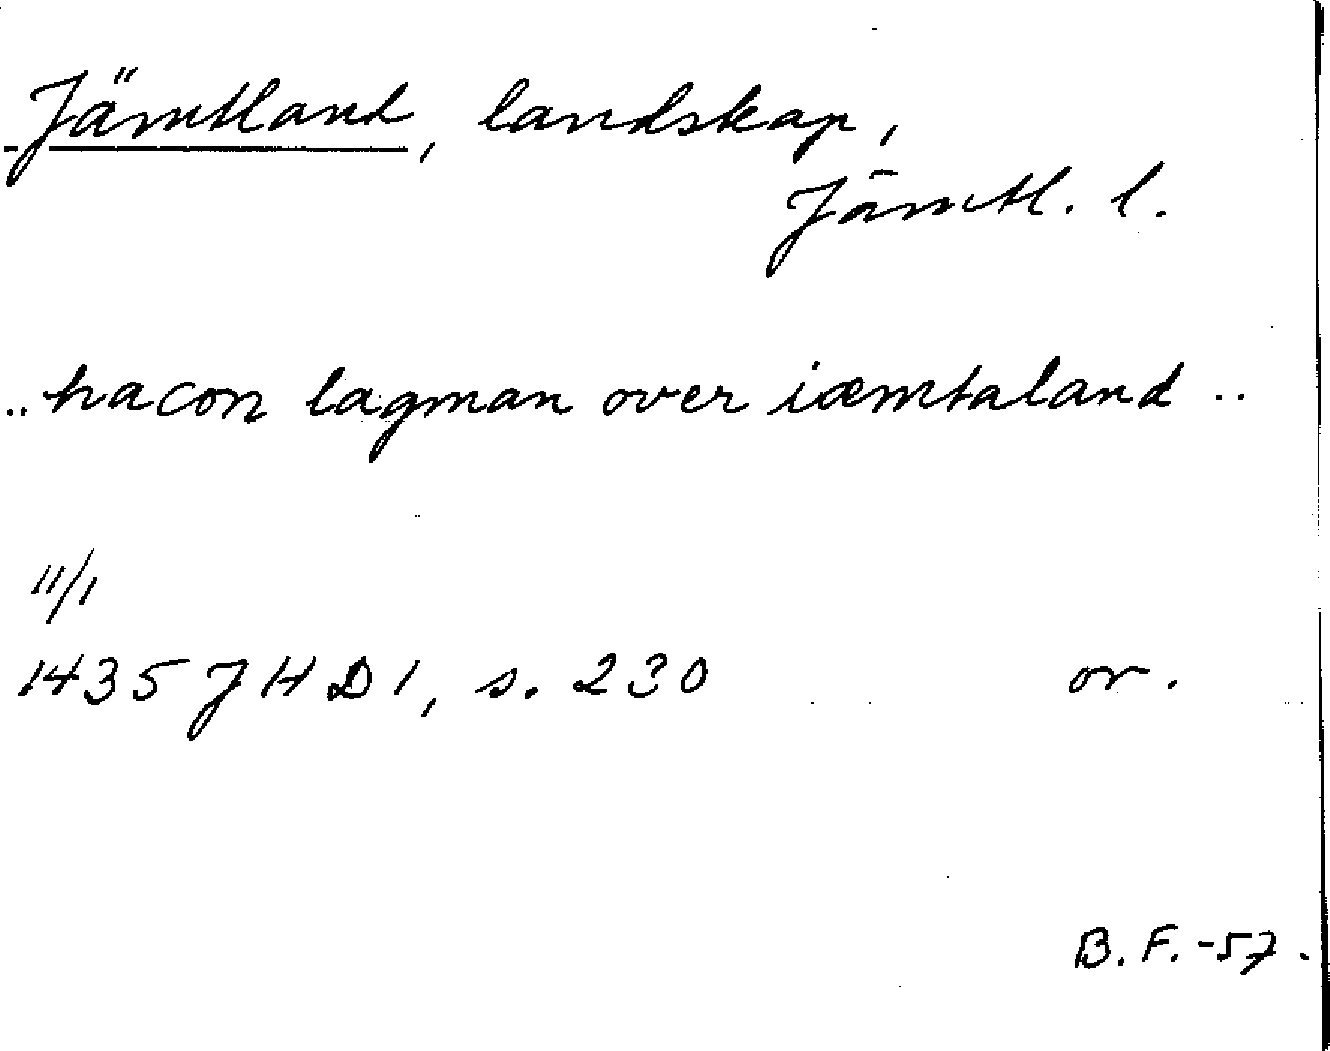 Jämtland, landskap,
Jämtl. l.
.. hacon lagman over iæmtaland ..
11/1
1435 JHD1, s. 230 or.
B. F. -57.